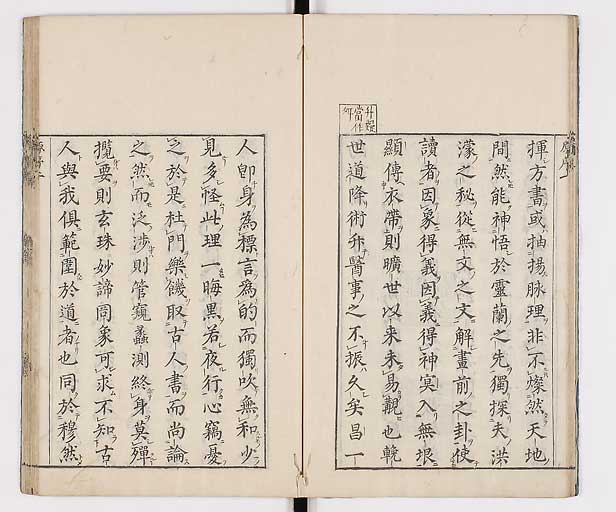 揮方書或抽揚脉理非不燦然天地
間然能神悟於靈蘭之先獨探夫洪
濛之秘從無文之文解畫前之卦使
讀者因象得義因義得神冥入無垠
顯傳衣帶則曠世以来未易觀也輓
世道降術升醫事之不振久矣昌一
升疑
當作
人卽身為標言為的而獨吹無和少
見多怪此理一晦黑若夜行心竊憂
之於是杜門樂饑取古人書而尚論
之然而泛涉則管窺蠡測終身莫殫
攬要則玄珠妙諦罔象可求不知古
人與我俱範圍於道者也同於穆然